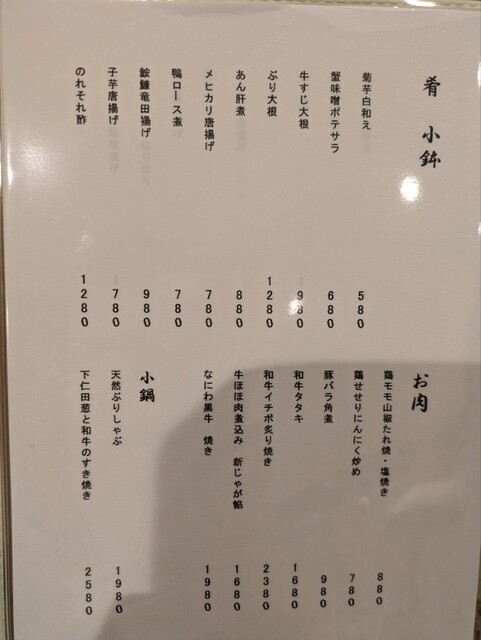 肴 小鉢
菊芋白和え 580
蟹味噌ポテサラ 680
牛すじ大根 980
ぶり大根 1280
あん肝煮 880
メヒカリ唐揚げ 780
鴨ロース煮 780
鮟鱇竜田揚げ 980
子芋唐揚げ 780
のれそれ酢 1280
お肉
鶏モモ山椒たれ焼・塩焼き 880
鶏せせりにんにく炒め 780
豚バラ角煮 980
和牛タタキ 1680
和牛イチボ炙り焼き 2380
牛ほほ肉煮込み 新じゃが餡 1680
なにわ黒牛 焼き 1980
小鍋
天然ぶりしゃぶ 1980
下仁田葱と和牛のすき焼き 2580